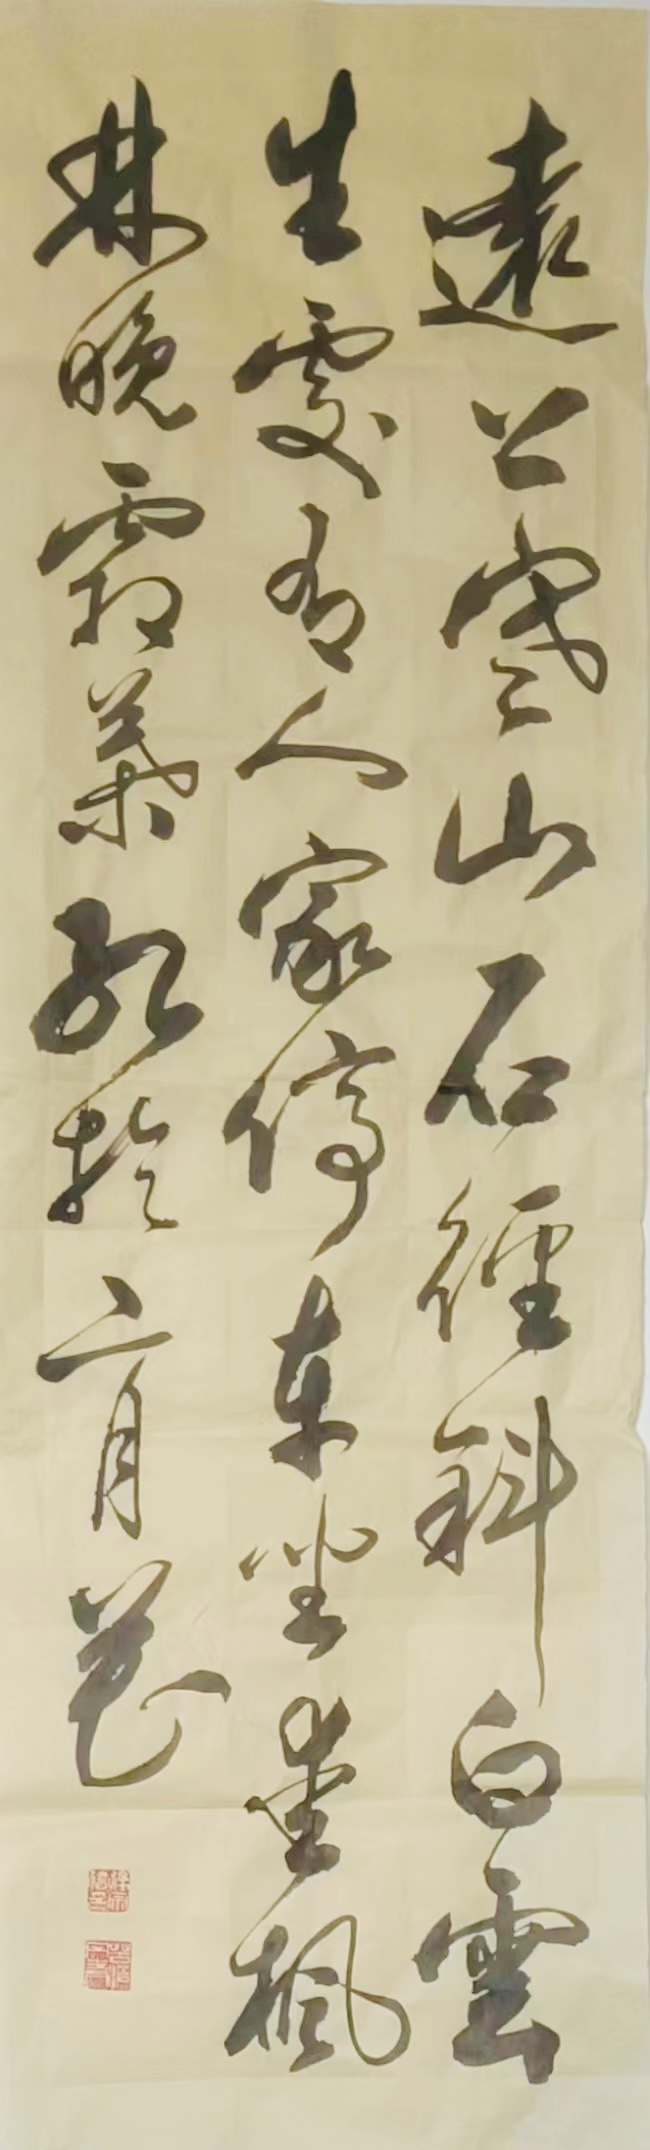 遠上寒山石徑斜白雲
生處有人家停車坐愛楓
林晚霜葉紅於二月花